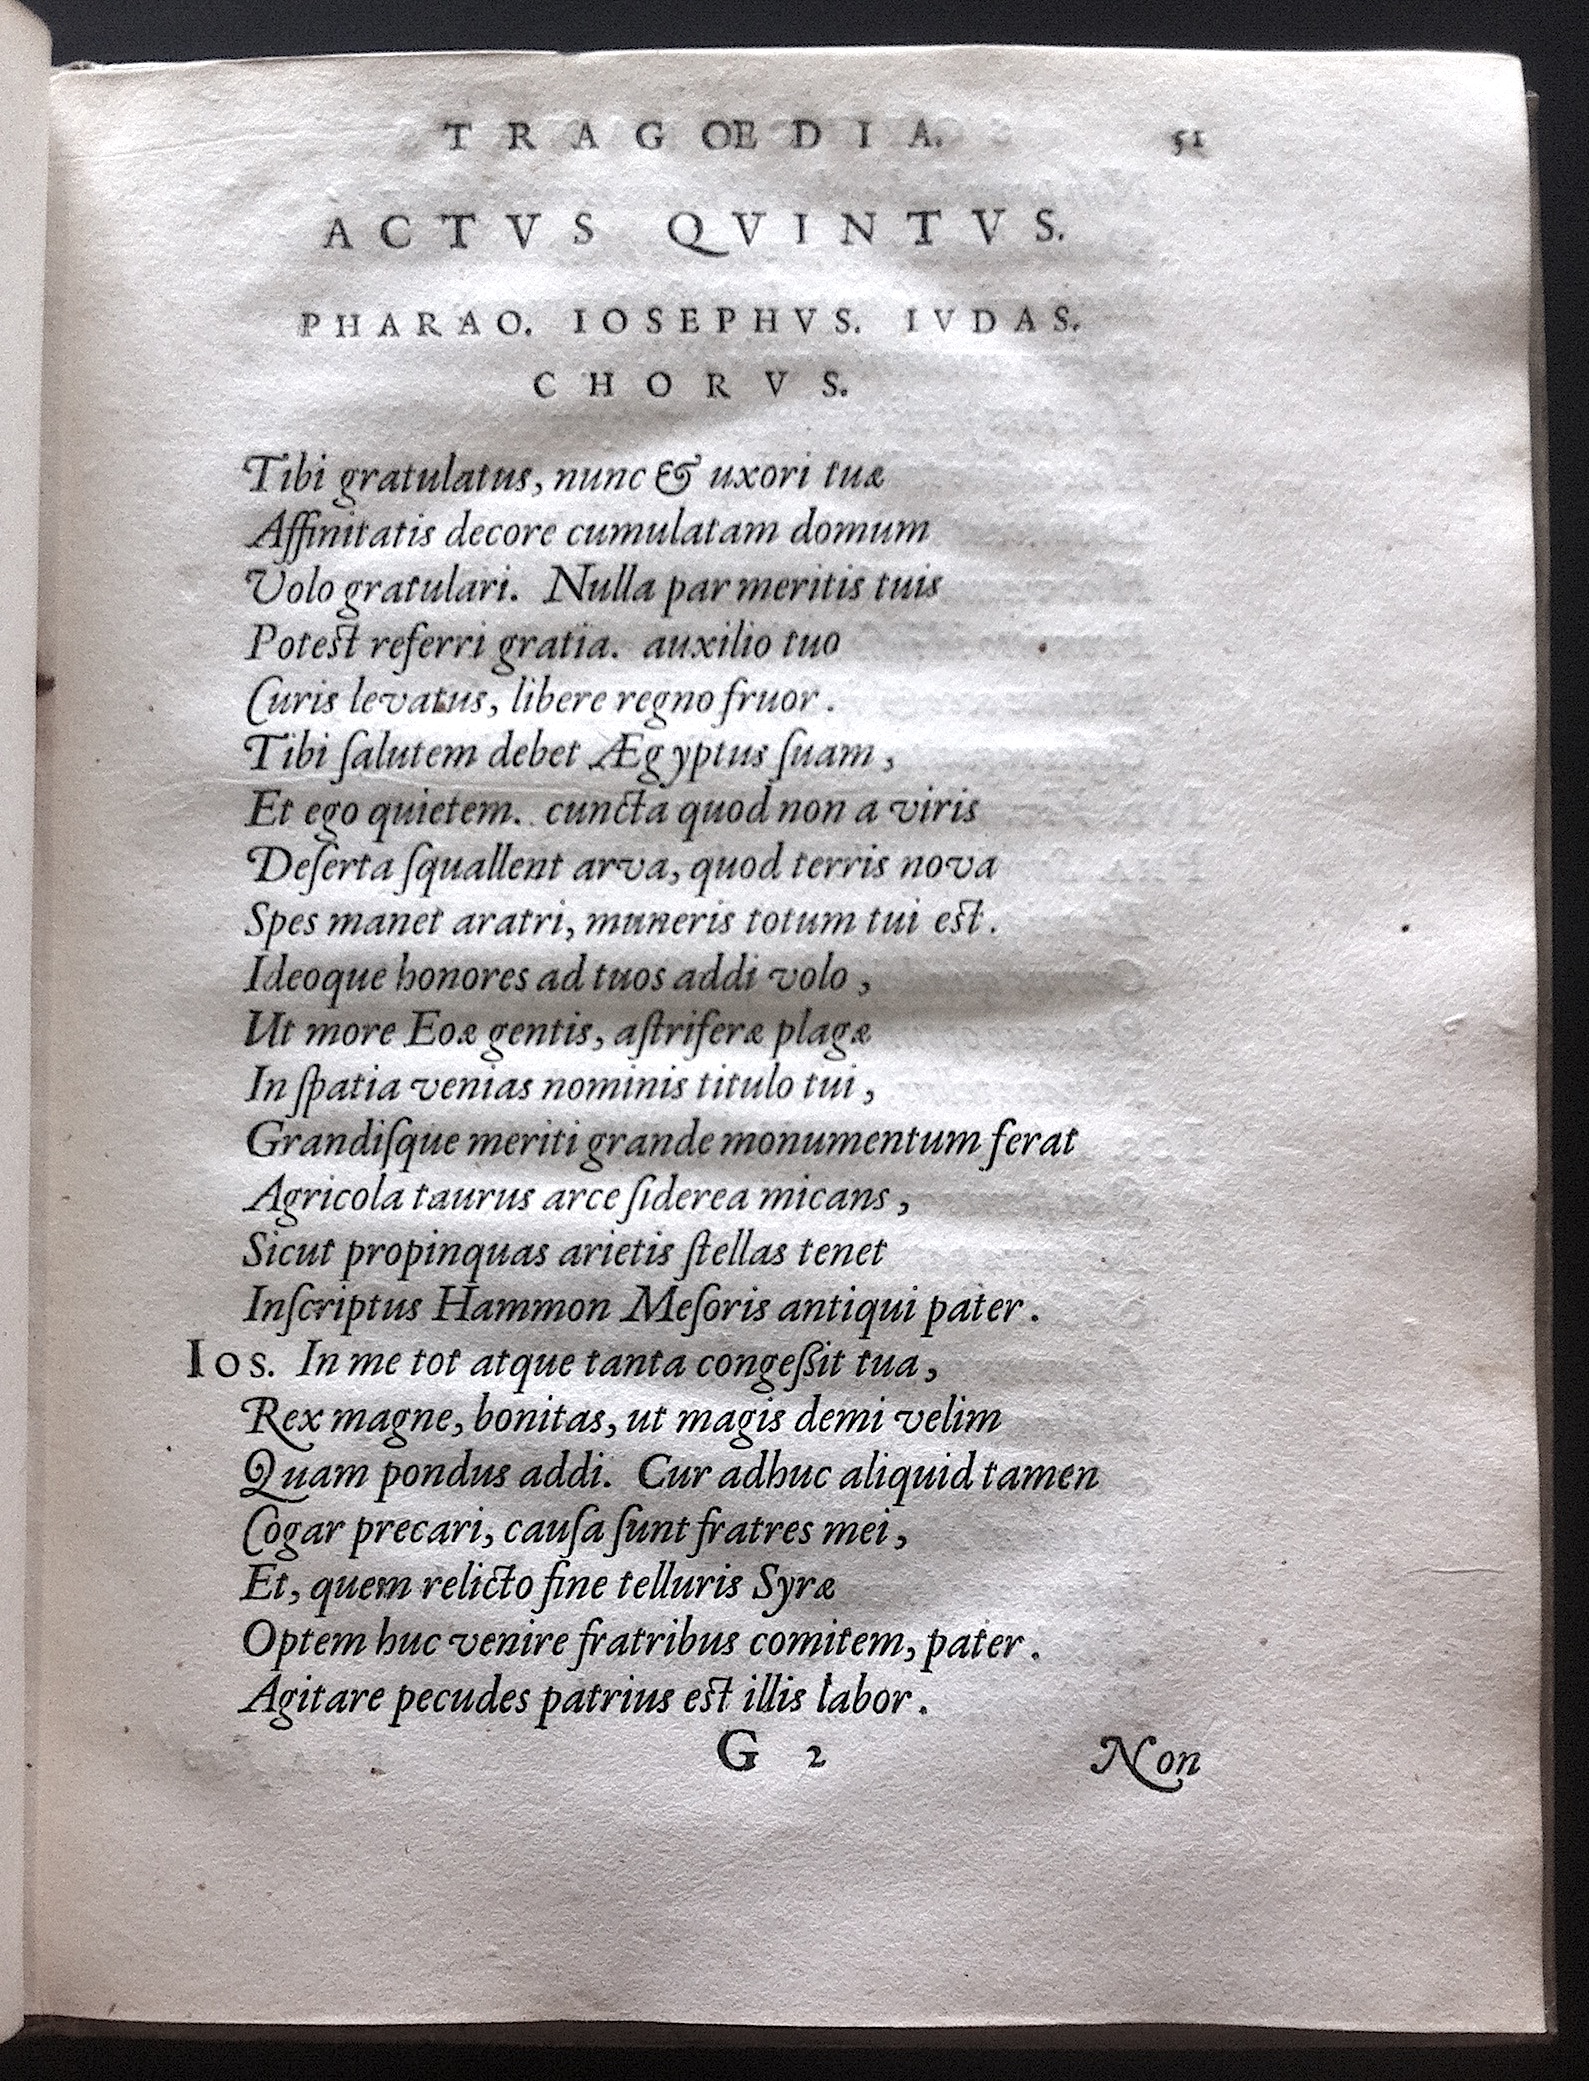 TRAGOEDIA. 51
ACTVS QVINTVS.
PHARAO. IOSEPHVS. IVDAS.
CHORVS.
Tibi gratulatus, nunc & uxori tuæ
Affinitatis decore cumulatam domum
Volo gratulari. Nulla par meritis tuis
Potest referri gratia. auxilio tuo
Curis levatus, libere regno fruor.
Tibi ſalutem debet Ægyptus ſuam,
Et ego quietem. cuncta quod non a viris
Deſerta ſquallent arva, quod terris nova
Spes manet aratri, muneris totum tui est.
Ideoque honores ad tuos addi volo,
Ut more Eoæ gentis, aſtriferæ plagæ
In ſpatia venias nominis titulo tui,
Grandiſque meriti grande monumentum ferat
Agricola taurus arce ſiderea micans,
Sicut propinquas arietis ſtellas tenet
Inſcriptus Hammon Meſoris antiqui pater.
Ios. In me tot atque tanta congeßit tua,
Rex magne, bonitas, ut magis demi velim
Quam pondus addi. Cur adhuc aliquid tamen
Cogar precari, cauſa ſunt fratres mei,
Et, quem relicto fine telluris Syræ
Optem huc venire fratribus comitem, pater.
Agitare pecudes patrius est illis labor.
G 2 Non